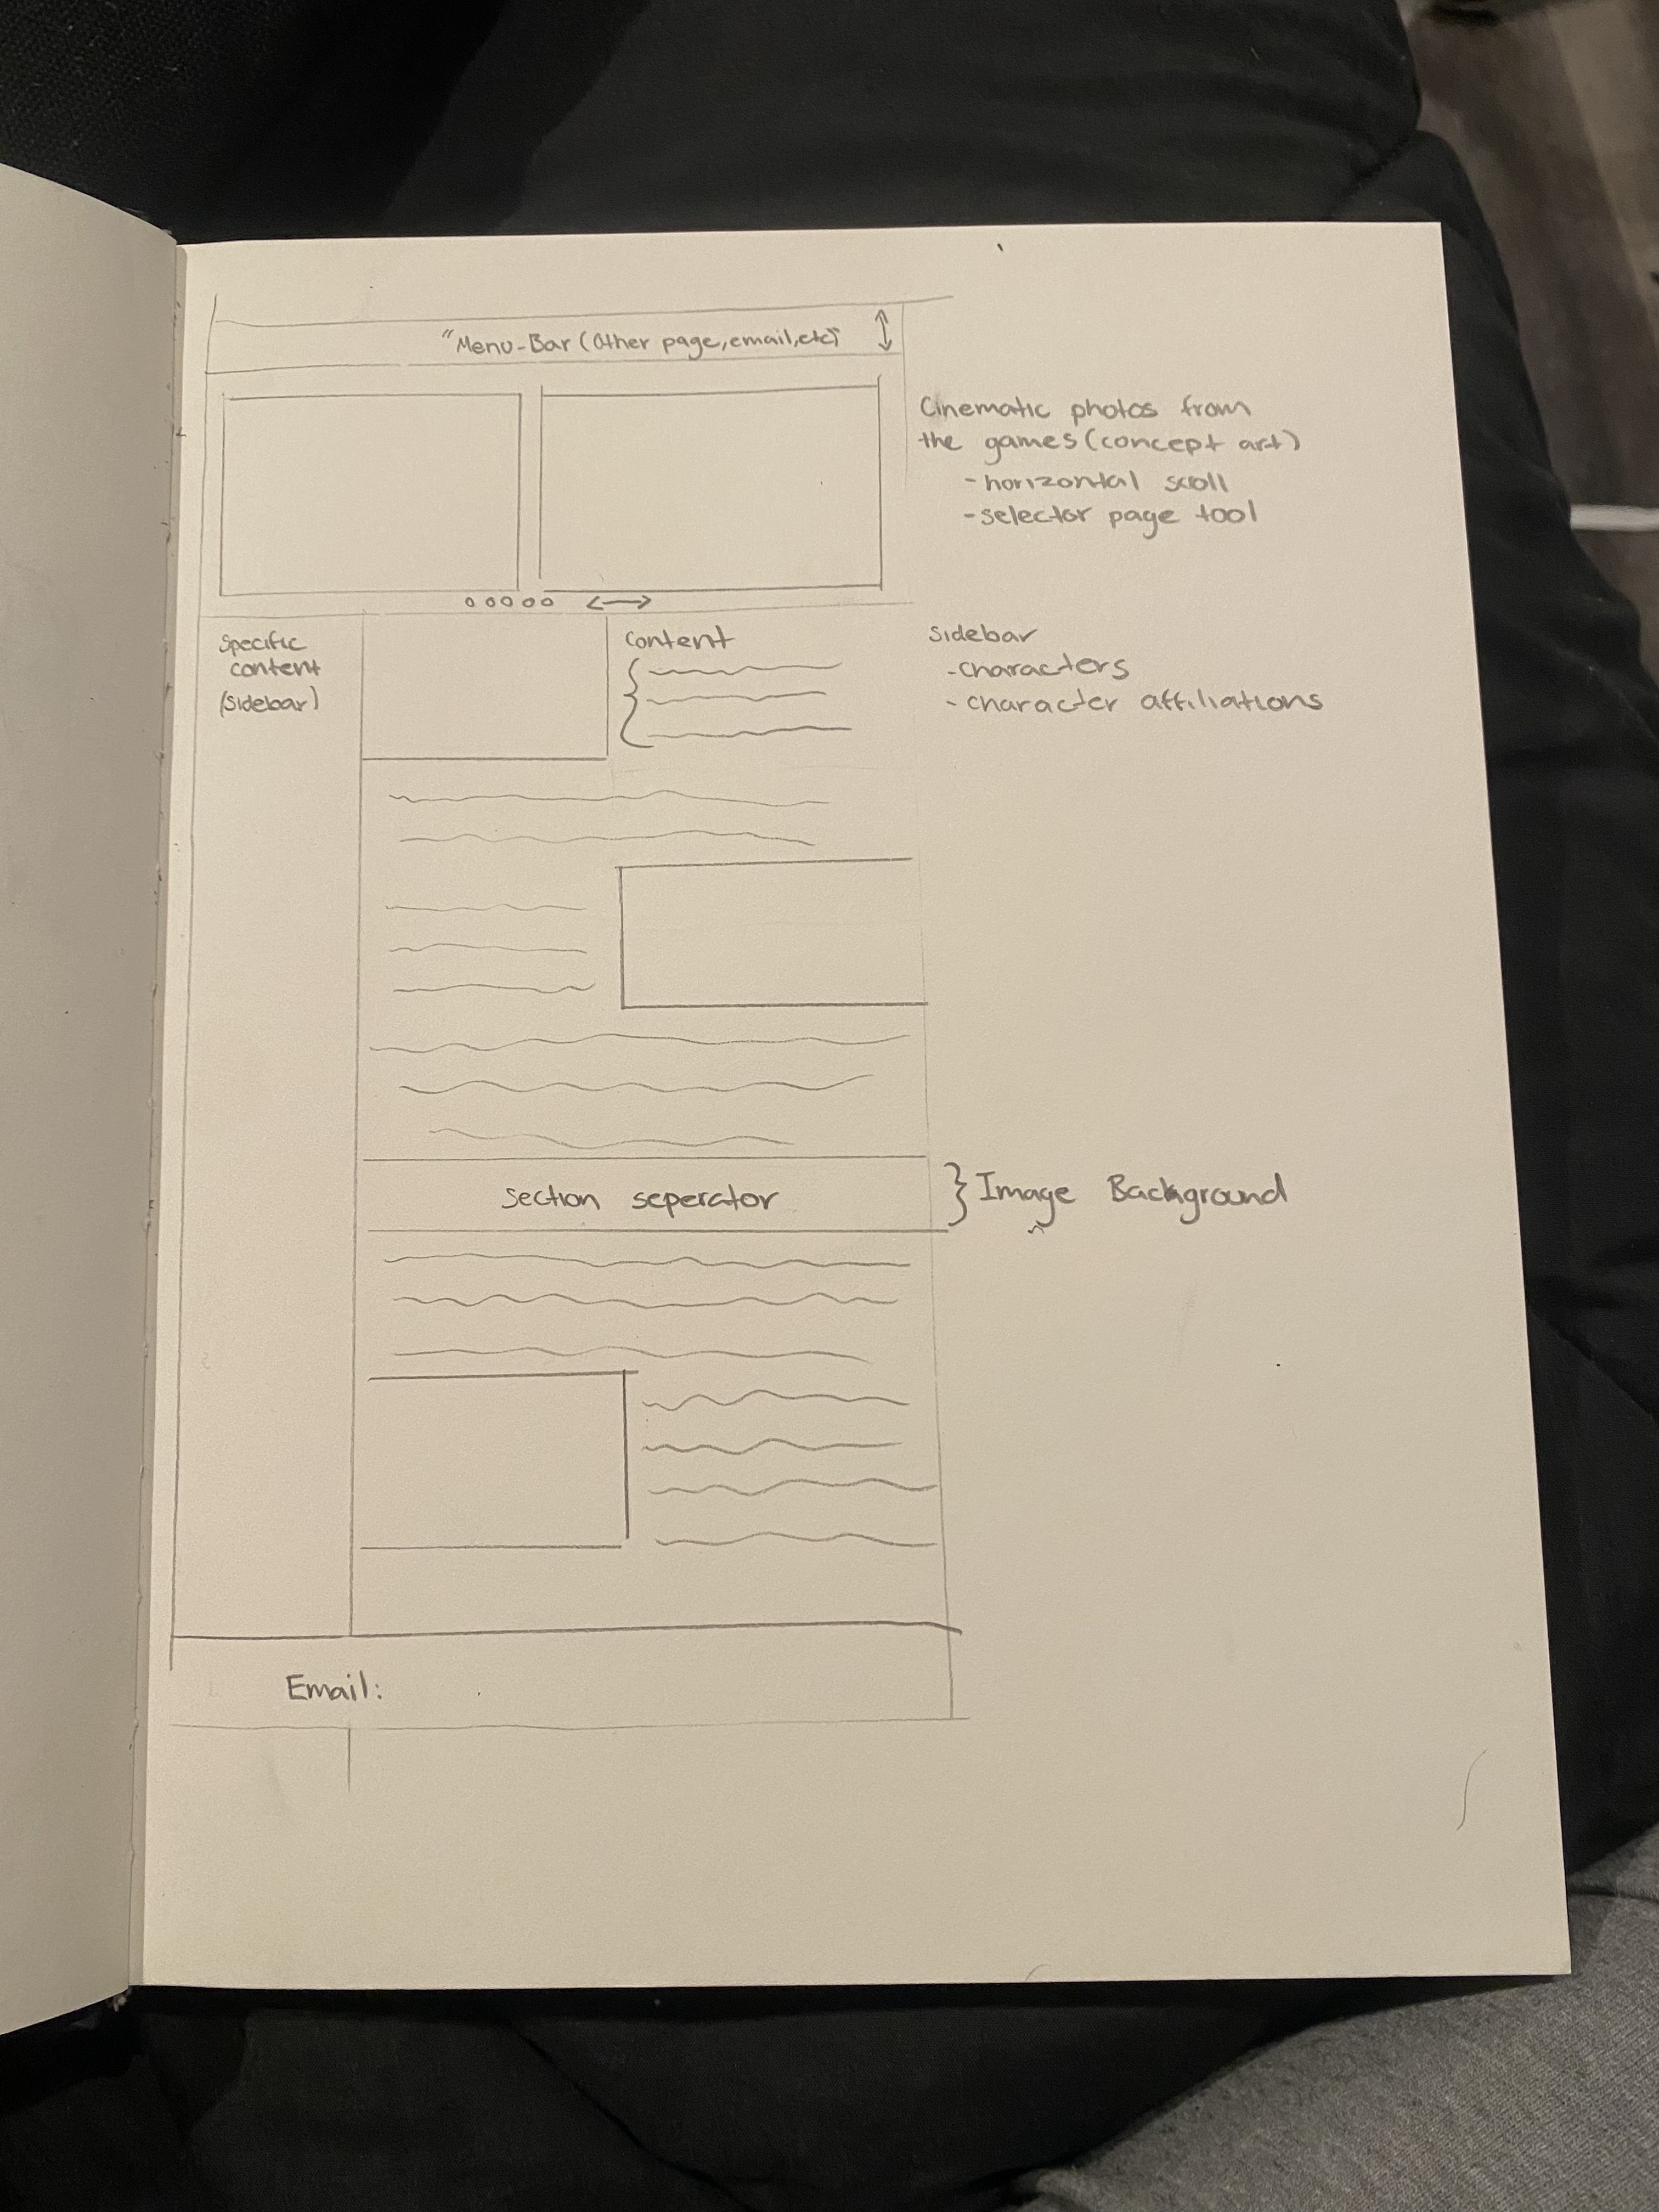 "Menu-Bar (Other page, email, etc)"
Cinematic photos from
the games (concept art)
- horizontal scroll
- selector page tool
Specific
content
(sidebar)
Content
Sidebar
- characters
- character affiliations
Section seperator
Image Background
Email: